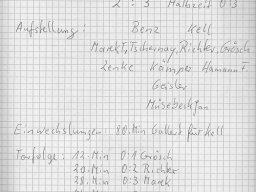 2 : 3 Halbzeit 0:3
Aufstellung: Benz Kell
Marek T, Tschernay, Richter, Grösch
Zenke Kämper Hamann F
Geisler
Müsebeck Jan
Einwechslungen: 80. Min Gallert für Kell
Torfolge: 12. Min 0:1 Grösch
20. Min 0:2 Richter
28. Min 0:3 Marek